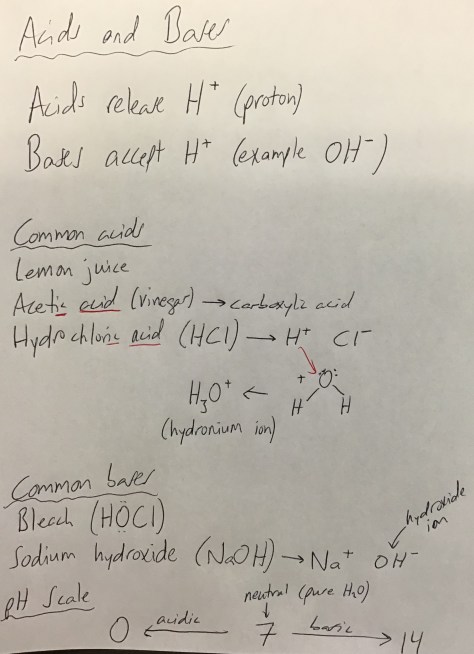 Acids and Bases
Acids release H⁺ (proton)
Bases accept H⁺ (example OH⁻)
Common acids
Lemon juice
Acetic acid (vinegar) → carboxylic acid
Hydrochloric acid (HCl) → H⁺ Cl⁻
H₃O⁺ ← + :O:
H H
(hydronium ion)
Common bases
Bleach (HOCl)
hydroxide ion
Sodium hydroxide (NaOH) → Na⁺ OH⁻
pH Scale
neutral (pure H₂O)
0 ← acidic 7 basic → 14